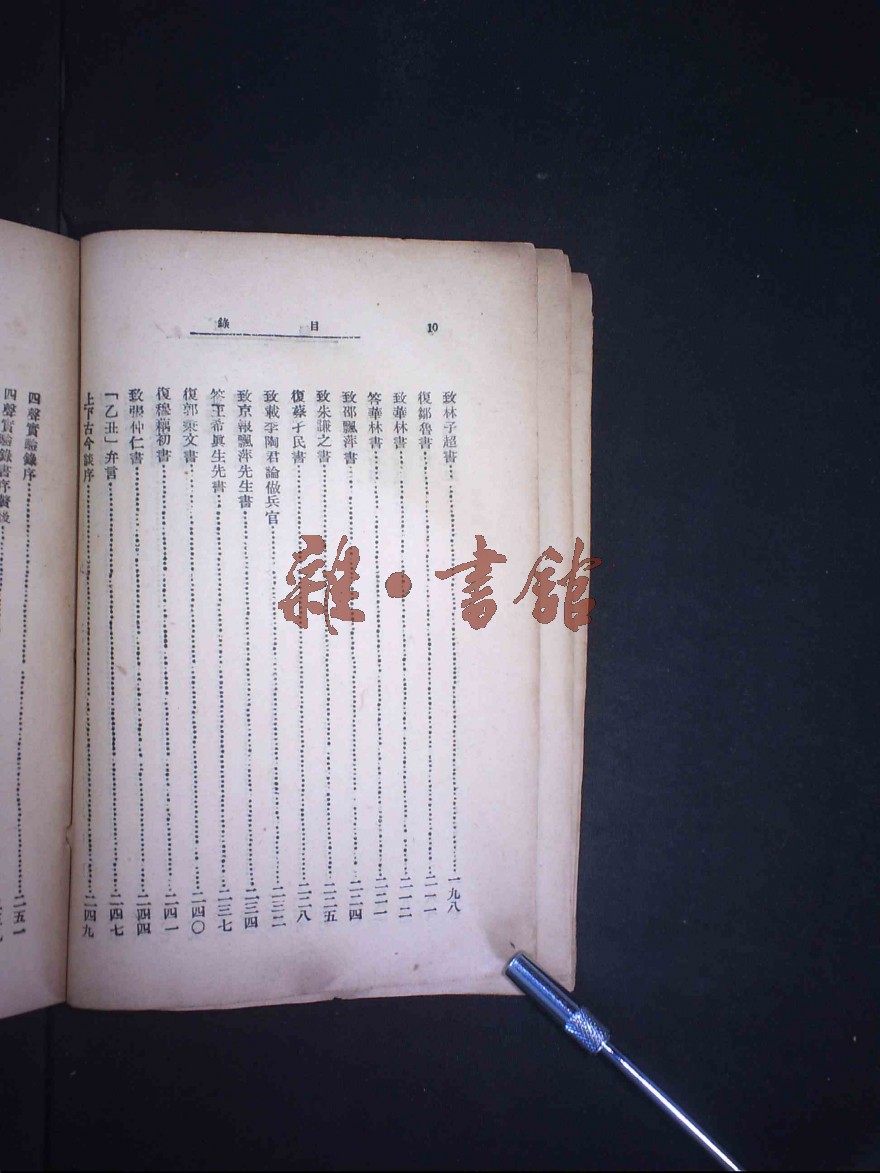 目錄
10
致林子超書……一九八
復鄒魯書……二一一
致華林書……二一二
答華林書……二二一
致邵飄萍書……二二四
致朱謙之書……二二五
復蔡孑民書……二二八
致戴季陶君論做兵官……二三二
致京報飄萍先生書……二三四
答王希真生先書……二三七
復郭秉文書……二四〇
復穆藕初書……二四一
致張仲仁書……二四四
「乙丑」弁言……二四七
上下古今談序……二四九
四聲實驗錄序……二五一
四聲實驗錄書序贅後
雜·書館